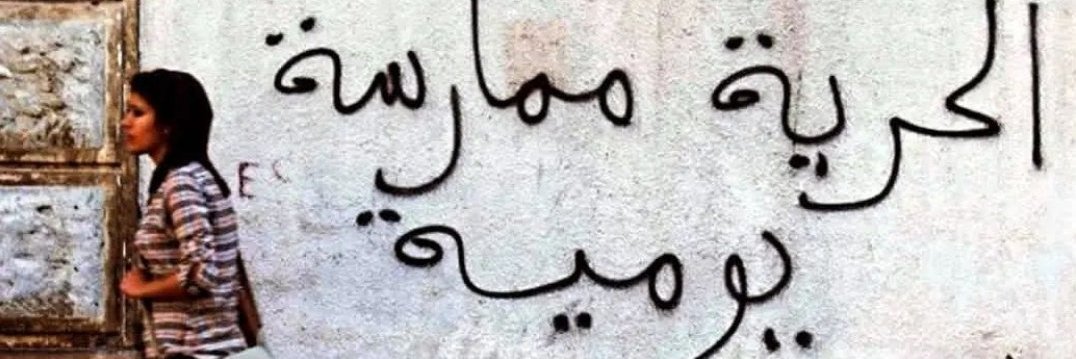 الحرية ممارسة
يومية
E